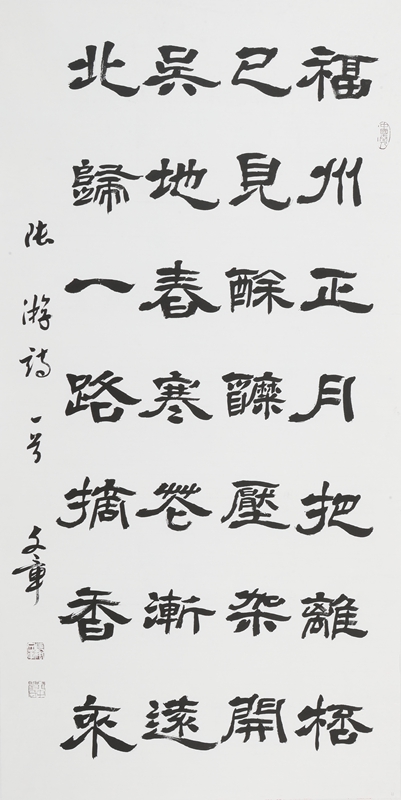 福州正月把離桮
已見酴醿壓架開
吳地春寒花漸遠
北歸一路摘香來
陸游詩一首 文章